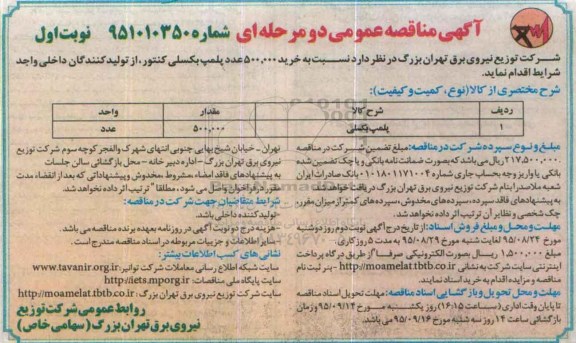 آگهی مناقصه عمومی دو مرحله ای شماره ۹۵۱۰۱۰۳۵۰ نوبت اول
شرکت توزیع نیروی برق تهران بزرگ در نظر دارد نسبت به خرید ۵۰۰,۰۰۰ عدد پلمپ بکسلی کنتور، از تولیدکنندگان داخلی واجد
شرایط اقدام نماید.
شرح مختصری از کالا (نوع، کمیت و کیفیت):
ردیف شرح کالا مقدار واحد
۱ پلمپ بکسلی ۵۰۰,۰۰۰ عدد
مبلغ و نوع سپرده شرکت در مناقصه: مبلغ تضمین شرکت در مناقصه
۲۱۷,۵۰۰,۰۰۰ ریال می باشد که بصورت ضمانت نامه بانکی و یا چک تضمین شده
بانکی یا واریز وجه بحساب جاری شماره ۰۱۰۱۸۰۱۱۷۱۰۰۴ بانک صادرات ایران
شعبه ملاصدرا بنام شرکت توزیع نیروی برق تهران بزرگ دریافت خواهد شد.
به پیشنهادهای فاقد سپرده، سپرده های مخدوش، سپرده های کمتر از میزان مقرر،
چک شخصی و نظایر آن ترتیب اثر داده نخواهد شد.
مهلت و محل و مبلغ فروش اسناد: از تاریخ درج آگهی نوبت دوم روز دوشنبه
مورخ ۹۵/۰۸/۲۴ لغایت شنبه مورخ ۹۵/۰۸/۲۹ به مدت ۵ روز کاری.
مبلغ ۱,۵۰۰,۰۰۰ ریال بصورت الکترونیکی صرفا" از طریق درگاه پرداخت
اینترنتی سایت شرکت به نشانی http://moamelat.tbtb.co.ir - بنر ثبت نام
مناقصه و مزایده اقدام به خرید اسناد نمایند.
مهلت و محل تحویل و بازگشایی اسناد مناقصه: مهلت تحویل اسناد مناقصه
تا پایان وقت اداری (ساعت ۱۶:۱۵) روز یکشنبه مورخ ۹۵/۰۹/۱۴ و زمان
بازگشائی ساعت ۱۴ روز سه شنبه مورخ ۹۵/۰۹/۱۶ می باشد.
تهران - خیابان شیخ بهایی جنوبی انتهای شهرک والفجر کوچه سوم شرکت توزیع
نیروی برق تهران بزرگ - اداره دبیر خانه - محل بازگشائی سالن جلسات
به پیشنهادهای فاقد امضاء، مشروط، مخدوش و پیشنهاداتی که بعد از انقضاء مدت
مقرر در فراخوان واصل می شود، مطلقا" ترتیب اثر داده نخواهد شد.
شرایط متقاضیان جهت شرکت در مناقصه:
-تولید کننده داخلی باشد.
-هزینه درج دو نوبت آگهی در روزنامه بعهده برنده مناقصه می باشد.
-سایر اطلاعات و جزییات مربوطه در اسناد مناقصه مندرج است.
نشانی های کسب اطلاعات بیشتر:
سایت شبکه اطلاع رسانی معاملات شرکت توانیر: www.tavanir.org.ir
سایت پایگاه ملی مناقصات: http://iets.mporg.ir
سایت شرکت توزیع نیروی برق تهران بزرگ: http://moamelat.tbtb.co.ir
روابط عمومی شرکت توزیع
نیروی برق تهران بزرگ (سهامی خاص)